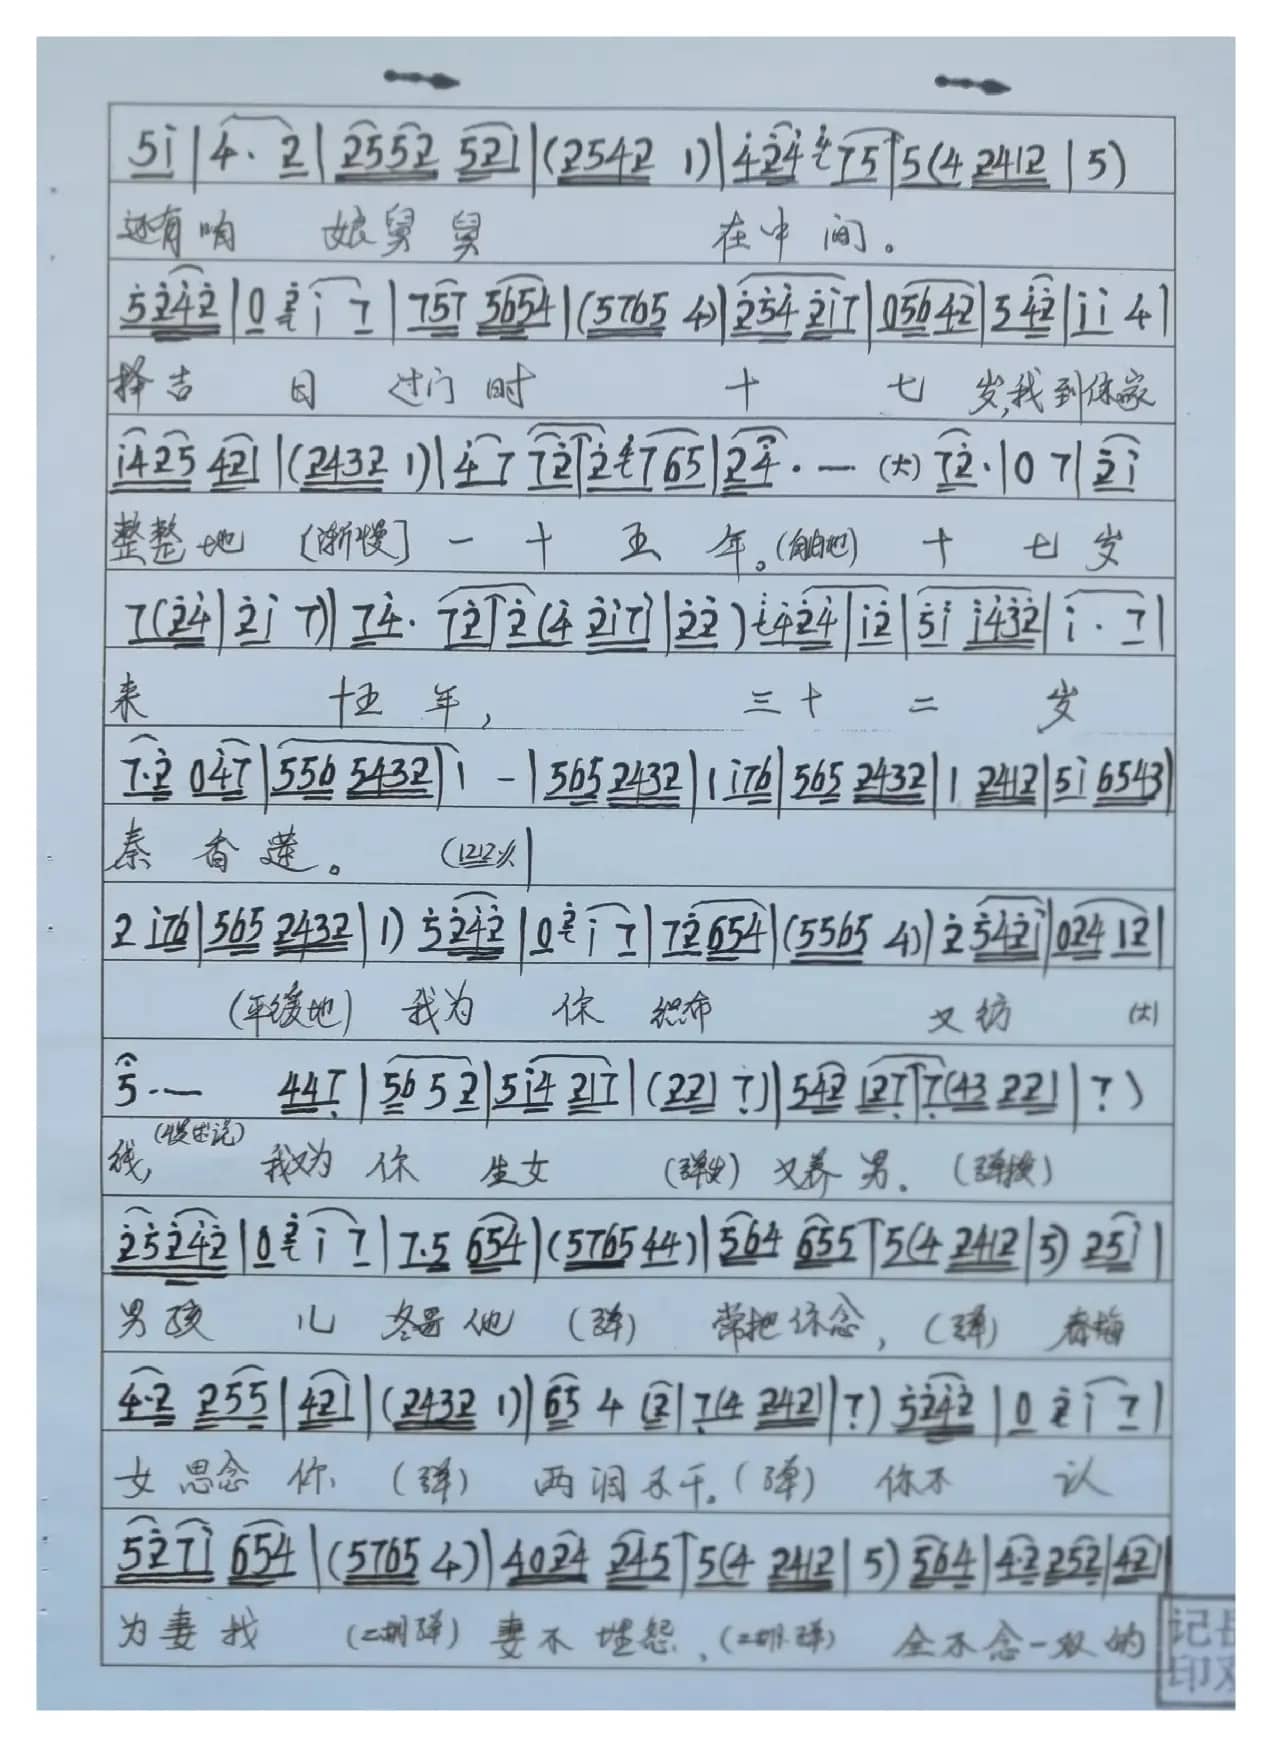 5i | 4· 2 | 2552 521 | (2542 1) | 424 4 75 ↑ 5(4 2412 | 5)
还有咱 娘舅舅 在中间。
5242 | 0 2 i 7 | 757 5654 | (5765 4) | 254 2i7 | 05642 | 5 42 | ii 4 |
择吉 日 过门时 十 七 岁,我到你家
i425 421 | (2432 1) | 4 7 72 ↑ 2 4 765 | 24·一 (大) 72· | 0 7 | 2i
整整地 [渐慢] 一 十 五 年。(自由地) 十 七 岁
7(24 | 2i 7) | 74· 72 ↑ 2(4 2i7 | 22) i 424 | i2 | 5i i432 | i · 7 |
来 十五 年, 三十 二 岁
7·2 047 | 556 5432 | 1 - | 565 2432 | 1 i76 | 565 2432 | 1 2412 | 5i 6543 |
秦 香 莲。
2 i76 | 565 2432 | 1) 5242 | 0 2 i 7 | 72654 | (5565 4) | 2 542i | 024 12 |
(平缓地) 我为 你 织布 又纺 (大)
5·一 447 | 56 5 2 | 5i4 217 | (221 7) | 542 127 ↑ 7(43 221 | 7)
线, 我为 你 生女 又养 男。
25242 | 0 2 i 7 | 7·5 654 | (576544) | 564 655 ↑ 5(4 2412 | 5) 25i |
男孩 儿 冬哥他 (弹) 常把你念, (弹) 春梅
4·2 255 | 421 | (2432 1) | 65 4 12 | 7(4 2421 | 7) 5242 | 0 2 i 7 |
女 思念 你 (弹) 两泪不干。(弹) 你不 认
527i 654 | (5765 4) | 4024 245 ↑ 5(4 2412 | 5) 564 | 4·2 252 | 421
为妻我 (二胡弹) 妻不 埋怨, (二胡弹) 全不念一双的
记
印